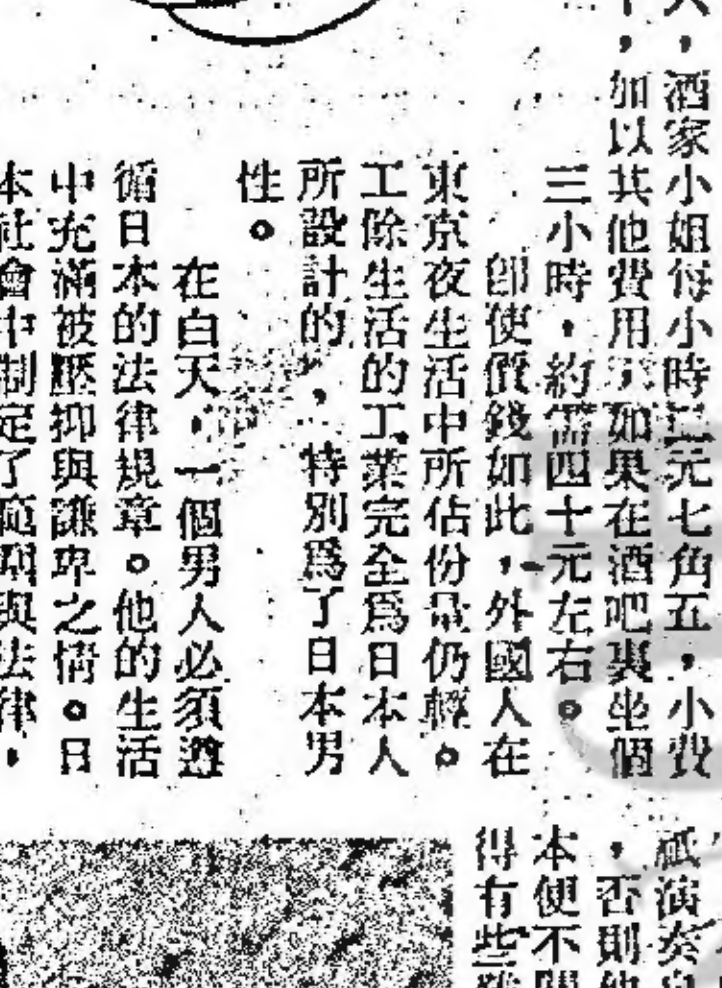 ，酒家小姐每小時元七角五，小費
，加以其他費用如果在酒吧裏坐個
三小時，約需四十元左右。
卽使價錢如此，外國人在
東京夜生活中所佔份量仍輕。
工餘生活的工業完全爲日本人
所設計的，特別爲了日本男
性。
在白天，一個男人必須遵
循日本的法律規章。他的生活
中充滿被壓抑與謙卑之情。日
本社會中制定了與法律，
祇演奏
，否則他
本便不
得有些